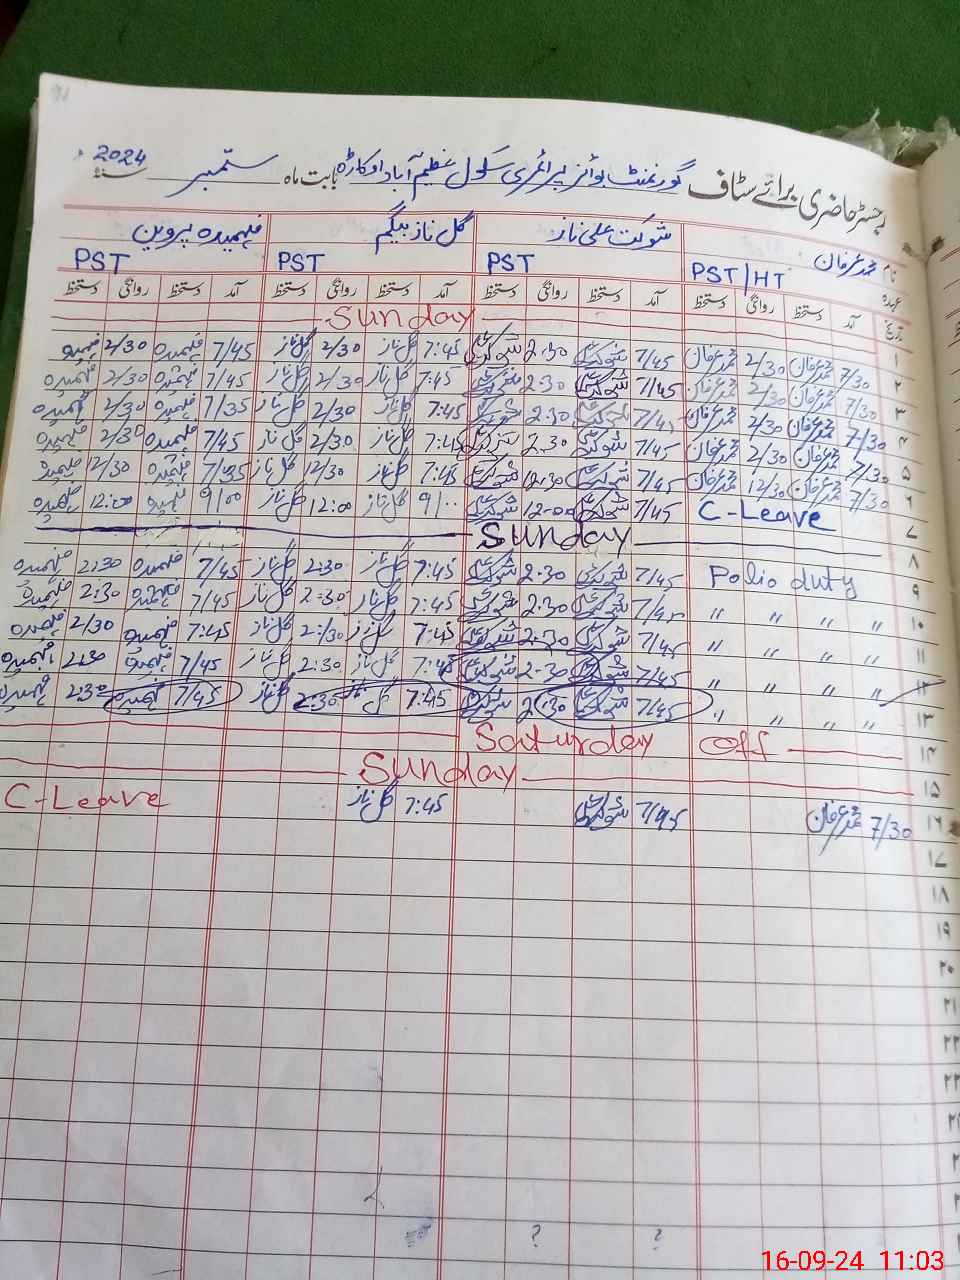 رجسٹر حاضری برائے سٹاف گورنمنٹ بوائز پرائمری سکول عظیم آباد اوکاڑہ بابت ماہ ستمبر سنہ 2024
نام محمد عرفان شوکت علی ناز گل ناز بیگم فہمیدہ پروین
عہدہ PST/HT PST PST PST
تاریخ آمد دستخط روانگی دستخط آمد دستخط روانگی دستخط آمد دستخط روانگی دستخط آمد دستخط روانگی دستخط
۱ Sunday
۲ 7/30 محمد عرفان 2/30 محمد عرفان 7/45 شوکت علی 2:30 شوکت علی 7:45 گل ناز 2/30 گل ناز 7/45 فہمیدہ 2/30 فہمیدہ
۳ 7/30 محمد عرفان 2/30 محمد عرفان 7/45 شوکت علی 2:30 شوکت علی 7:45 گل ناز 2/30 گل ناز 7/45 فہمیدہ 2/30 فہمیدہ
۴ 7/30 محمد عرفان 2/30 محمد عرفان 7/45 شوکت علی 2:30 شوکت علی 7:45 گل ناز 2/30 گل ناز 7/35 فہمیدہ 2/30 فہمیدہ
۵ 7/30 محمد عرفان 2/30 محمد عرفان 7/45 شوکت علی 2:30 شوکت علی 7:45 گل ناز 2/30 گل ناز 7/45 فہمیدہ 2/30 فہمیدہ
۶ 7/30 محمد عرفان 12/30 محمد عرفان 7/45 شوکت علی 12:30 شوکت علی 7:45 گل ناز 12/30 گل ناز 7/35 فہمیدہ 12/30 فہمیدہ
۷ C-Leave 7/45 شوکت علی 12:00 شوکت علی 9/00 گل ناز 12:00 گل ناز 9/00 فہمیدہ 12:00 فہمیدہ
۸ Sunday
۹ Polio duty 7/45 شوکت علی 2:30 شوکت علی 7:45 گل ناز 2:30 گل ناز 7/45 فہمیدہ 2:30 فہمیدہ
۱۰ " " " " 7/45 شوکت علی 2:30 شوکت علی 7:45 گل ناز 2:30 گل ناز 7/45 فہمیدہ 2:30 فہمیدہ
۱۱ " " " " 7/45 شوکت علی 2:30 شوکت علی 7:45 گل ناز 2:/30 گل ناز 7:45 فہمیدہ 2/30 فہمیدہ
۱۲ " " " " 7/45 شوکت علی 2:30 شوکت علی 7:45 گل ناز 2:30 گل ناز 7/45 فہمیدہ 2:30 فہمیدہ
۱۳ " " " 7/45 شوکت علی 2:30 شوکت علی 7:45 گل ناز 2:30 گل ناز 7/45 فہمیدہ 2:30 فہمیدہ
۱۴ Saturday Off
۱۵ Sunday
۱۶ 7/30 محمد عرفان 7/45 شوکت علی 7:45 گل ناز C-Leave
۱۷
۱۸
۱۹
۲۰
۲۱
۲۲
۲۳
16-09-24 11:03